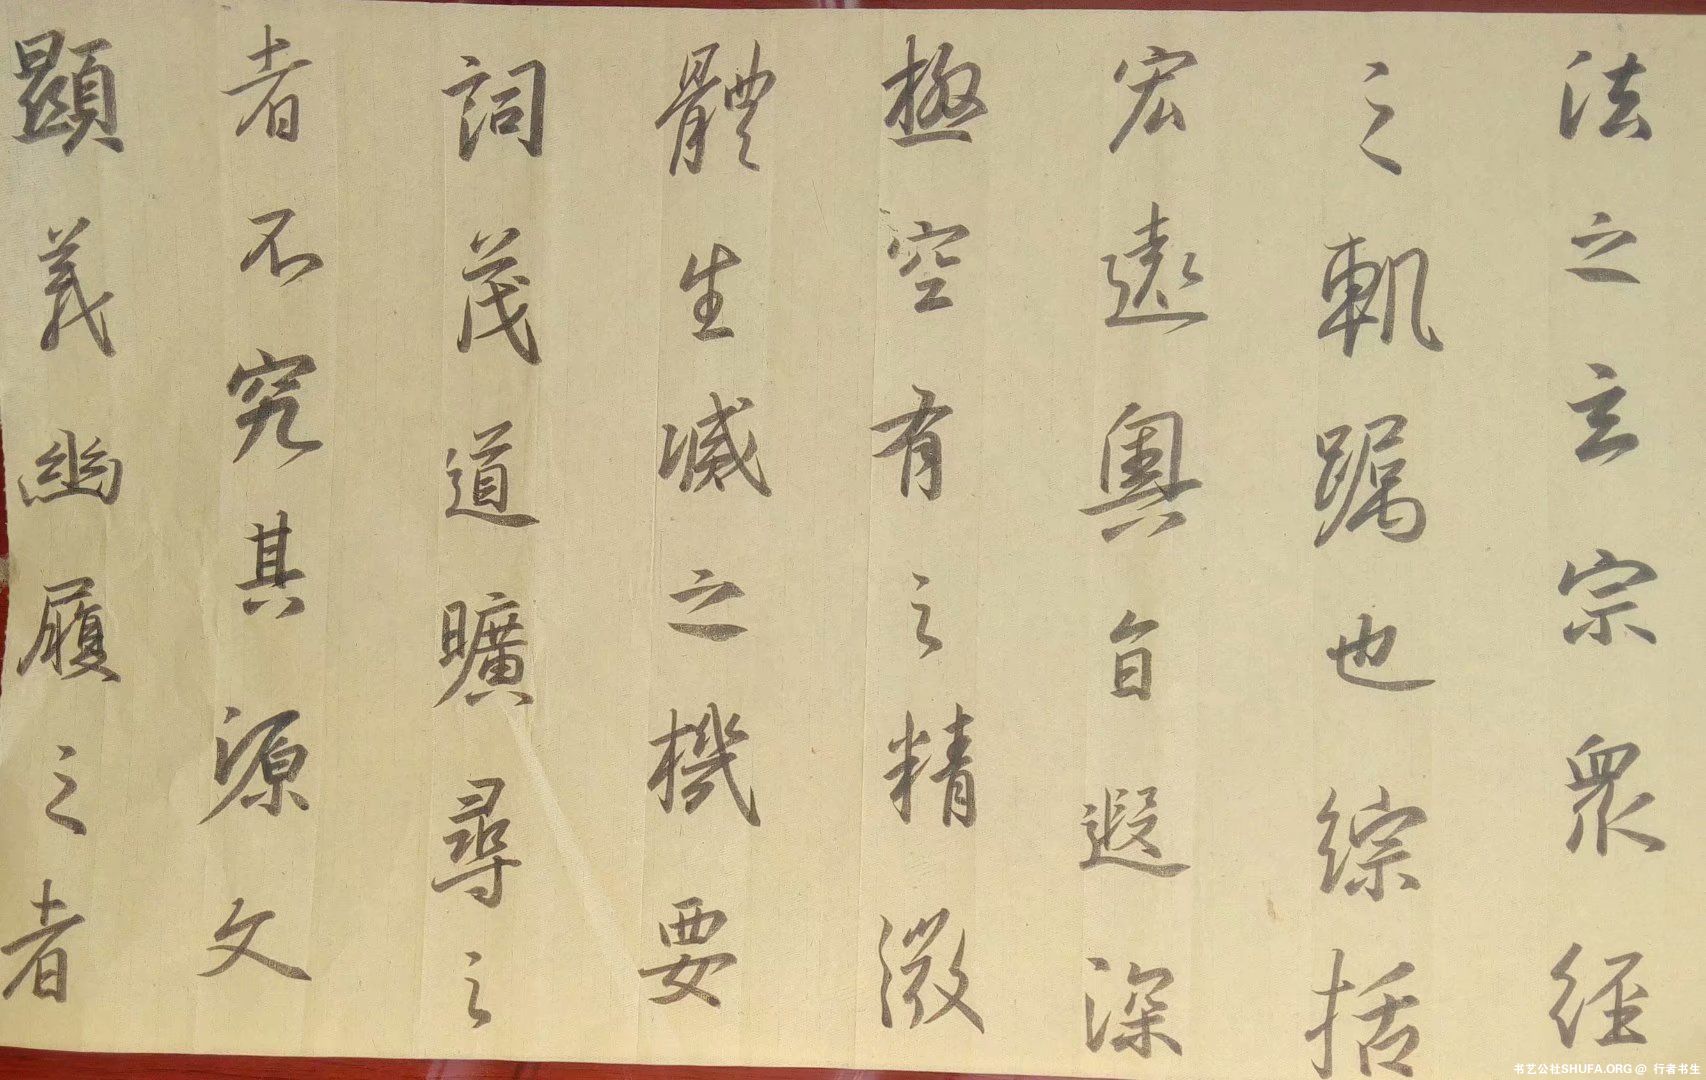 法之玄宗眾經
之軌躅也綜括
宏遠奧旨遐深
極空有之精微
體生滅之機要
詞茂道曠尋之
者不究其源文
顯義幽履之者
书艺公社SHUFA.ORG @ 行者书生